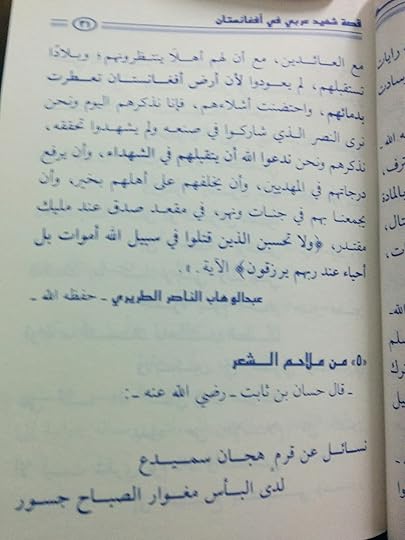 قصة شهيد عربي في أفغانستان
٣١
مع العائدين، مع أن لهم أهلاً ينتظرونهم؛ وبلاداً
تستقبلهم، لم يعودوا لأن أرض أفغانستان تعطرت
بدمائهم، واحتضنت أشلاءهم، فإنا نذكرهم اليوم ونحن
نرى النصر الذي شاركوا في صنعه ولم يشهدوا تحققه،
نذكرهم ونحن ندعوا الله أن يتقبلهم في الشهداء، وأن يرفع
درجاتهم في المهديين، وأن يخلفهم على أهلهم بخير، وأن
يجمعنا بهم في جنات ونهر، في مقعد صدق عند مليك
مقتدر، ﴿ولا تحسبن الذين قتلوا في سبيل الله أموات بل
أحياء عند ربهم يرزقون﴾ الآية. ».
عبدالوهاب الناصر الطريري ـ حفظه الله ـ
«٥» من ملاحم الشعر
ـ قال حسان بن ثابت ـ رضي الله عنه ـ:
نسائل عن قرم هجان سميدع
لدى البأس مغوار الصباح جسور